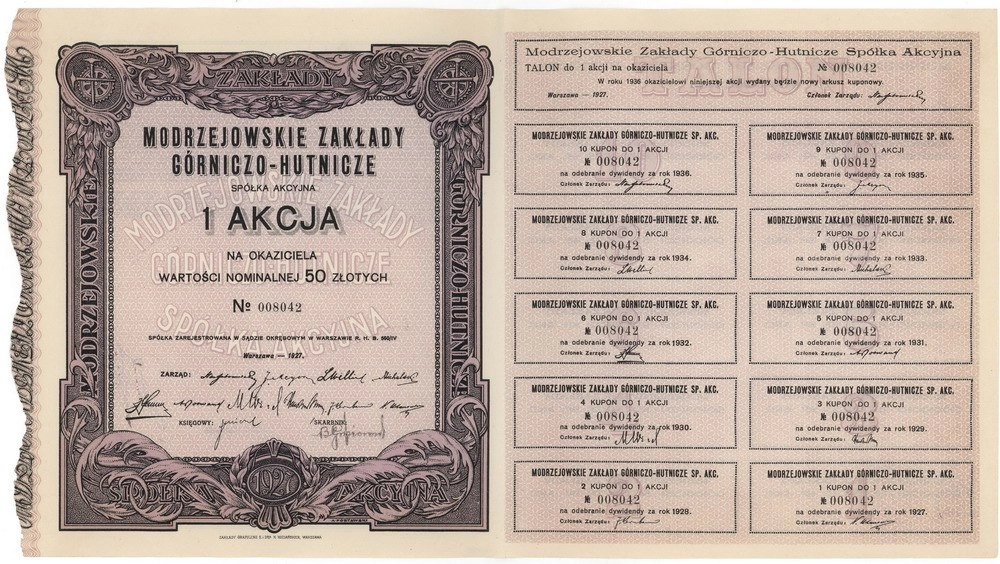 ZAKŁADY
MODRZEJOWSKIE
GÓRNICZO-HUTNICZE
MODRZEJOWSKIE ZAKŁADY
GÓRNICZO-HUTNICZE
SPÓŁKA AKCYJNA
MODRZEJOWSKIE ZAKŁADY
GÓRNICZO-HUTNICZE
SPÓŁKA AKCYJNA
1 AKCJA
NA OKAZICIELA
WARTOŚCI NOMINALNEJ 50 ZŁOTYCH
№ 008042
SPÓŁKA ZAREJESTROWANA W SĄDZIE OKRĘGOWYM W WARSZAWIE R. H. B.
Warszawa — 1927.
ZARZĄD:
KSIĘGOWY:
SKARBNIK:
1927
SPÓŁKA AKCYJNA
Modrzejowskie Zakłady Górniczo-Hutnicze Spółka Akcyjna
TALON do 1 akcji na okaziciela № 008042
W roku 1936 okazicielowi niniejszej akcji wydany będzie nowy arkusz kuponowy.
Warszawa — 1927. Członek Zarządu:
MODRZEJOWSKIE ZAKŁADY GÓRNICZO-HUTNICZE SP. AKC.
10 KUPON DO 1 AKCJI
№ 008042
na odebranie dywidendy za rok 1936.
Członek Zarządu:
MODRZEJOWSKIE ZAKŁADY GÓRNICZO-HUTNICZE SP. AKC.
9 KUPON DO 1 AKCJI
№ 008042
na odebranie dywidendy za rok 1935.
Członek Zarządu:
MODRZEJOWSKIE ZAKŁADY GÓRNICZO-HUTNICZE SP. AKC.
8 KUPON DO 1 AKCJI
№ 008042
na odebranie dywidendy za rok 1934.
Członek Zarządu:
MODRZEJOWSKIE ZAKŁADY GÓRNICZO-HUTNICZE SP. AKC.
7 KUPON DO 1 AKCJI
№ 008042
na odebranie dywidendy za rok 1933.
Członek Zarządu:
MODRZEJOWSKIE ZAKŁADY GÓRNICZO-HUTNICZE SP. AKC.
6 KUPON DO 1 AKCJI
№ 008042
na odebranie dywidendy za rok 1932.
Członek Zarządu:
MODRZEJOWSKIE ZAKŁADY GÓRNICZO-HUTNICZE SP. AKC.
5 KUPON DO 1 AKCJI
№ 008042
na odebranie dywidendy za rok 1931.
Członek Zarządu:
MODRZEJOWSKIE ZAKŁADY GÓRNICZO-HUTNICZE SP. AKC.
4 KUPON DO 1 AKCJI
№ 008042
na odebranie dywidendy za rok 1930.
Członek Zarządu:
MODRZEJOWSKIE ZAKŁADY GÓRNICZO-HUTNICZE SP. AKC.
3 KUPON DO 1 AKCJI
№ 008042
na odebranie dywidendy za rok 1929.
Członek Zarządu:
MODRZEJOWSKIE ZAKŁADY GÓRNICZO-HUTNICZE SP. AKC.
2 KUPON DO 1 AKCJI
№ 008042
na odebranie dywidendy za rok 1928.
Członek Zarządu:
MODRZEJOWSKIE ZAKŁADY GÓRNICZO-HUTNICZE SP. AKC.
1 KUPON DO 1 AKCJI
№ 008042
na odebranie dywidendy za rok 1927.
Członek Zarządu: